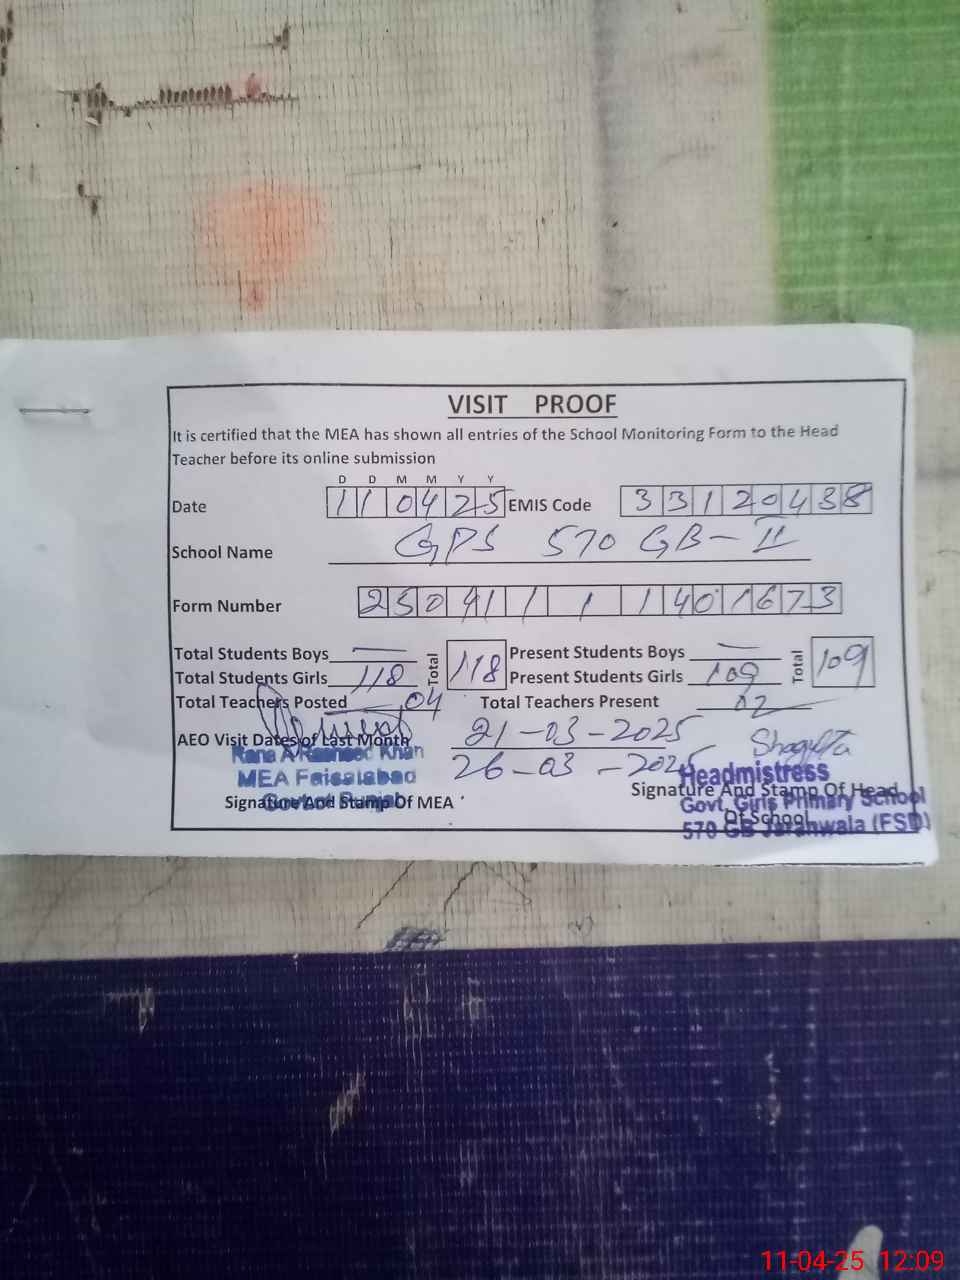 VISIT PROOF
It is certified that the MEA has shown all entries of the School Monitoring Form to the Head
Teacher before its online submission
D D M M Y Y
Date 110425 EMIS Code 33120438
School Name GPS 570 GB-II
Form Number 2509111401673
Total Students Boys — Total 118 Present Students Boys — Total 109
Total Students Girls 118 Present Students Girls 109
Total Teachers Posted 04 Total Teachers Present 02
AEO Visit Dates of Last Month 21-03-2025
26-03-2025
Shagufta
Rana A Khan
MEA Faisalabad
Govt of Punjab
Signature And Stamp Of MEA
Headmistress
Signature And Stamp Of Head
Of School
Govt. Girls Primary School
570 GB Jaranwala (FSD)
11-04-25 12:09